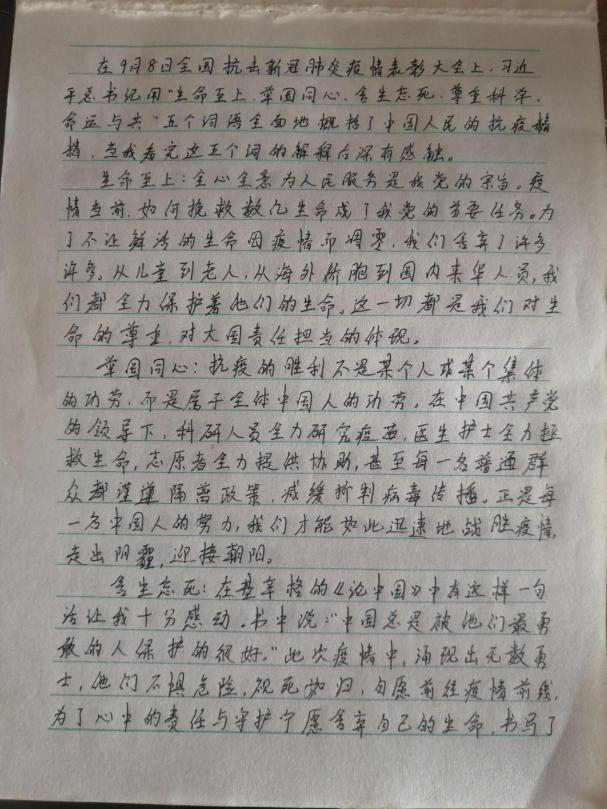 在9月8日全国抗击新冠肺炎疫情表彰大会上，习近
平总书记用"生命至上，举国同心，舍生忘死，尊重科学，
命运与共"五个词语全面地概括了中国人民的抗疫精
神，当我看完这五个词的解释后深有感触。
生命至上：全心全意为人民服务是我党的宗旨。疫
情当前，如何挽救数亿生命成了我党的首要任务。为
了不让鲜活的生命因疫情而凋零，我们舍弃了许多
许多。从儿童到老人，从海外侨胞到国内来华人员，我
们都全力保护着他们的生命。这一切都是我们对生
命的尊重，对大国责任担当的体现。
举国同心：抗疫的胜利不是某个人或某个集体
的功劳，而是属于全体中国人的功劳。在中国共产党
的领导下，科研人员全力研究疫苗，医生护士全力拯
救生命，志愿者全力提供协助，甚至每一名普通群
众都谨遵隔离政策，减缓抑制病毒传播。正是每
一名中国人的努力，我们才能如此迅速地战胜疫情，
走出阴霾，迎接朝阳。
舍生忘死：在基辛格的《论中国》中有这样一句
话让我十分感动。书中说："中国总是被他们最勇
敢的人保护的很好。"此次疫情中，涌现出无数勇
士，他们不惧危险，视死如归，自愿前往疫情前线，
为了心中的责任与守护宁愿舍弃自己的生命，书写了